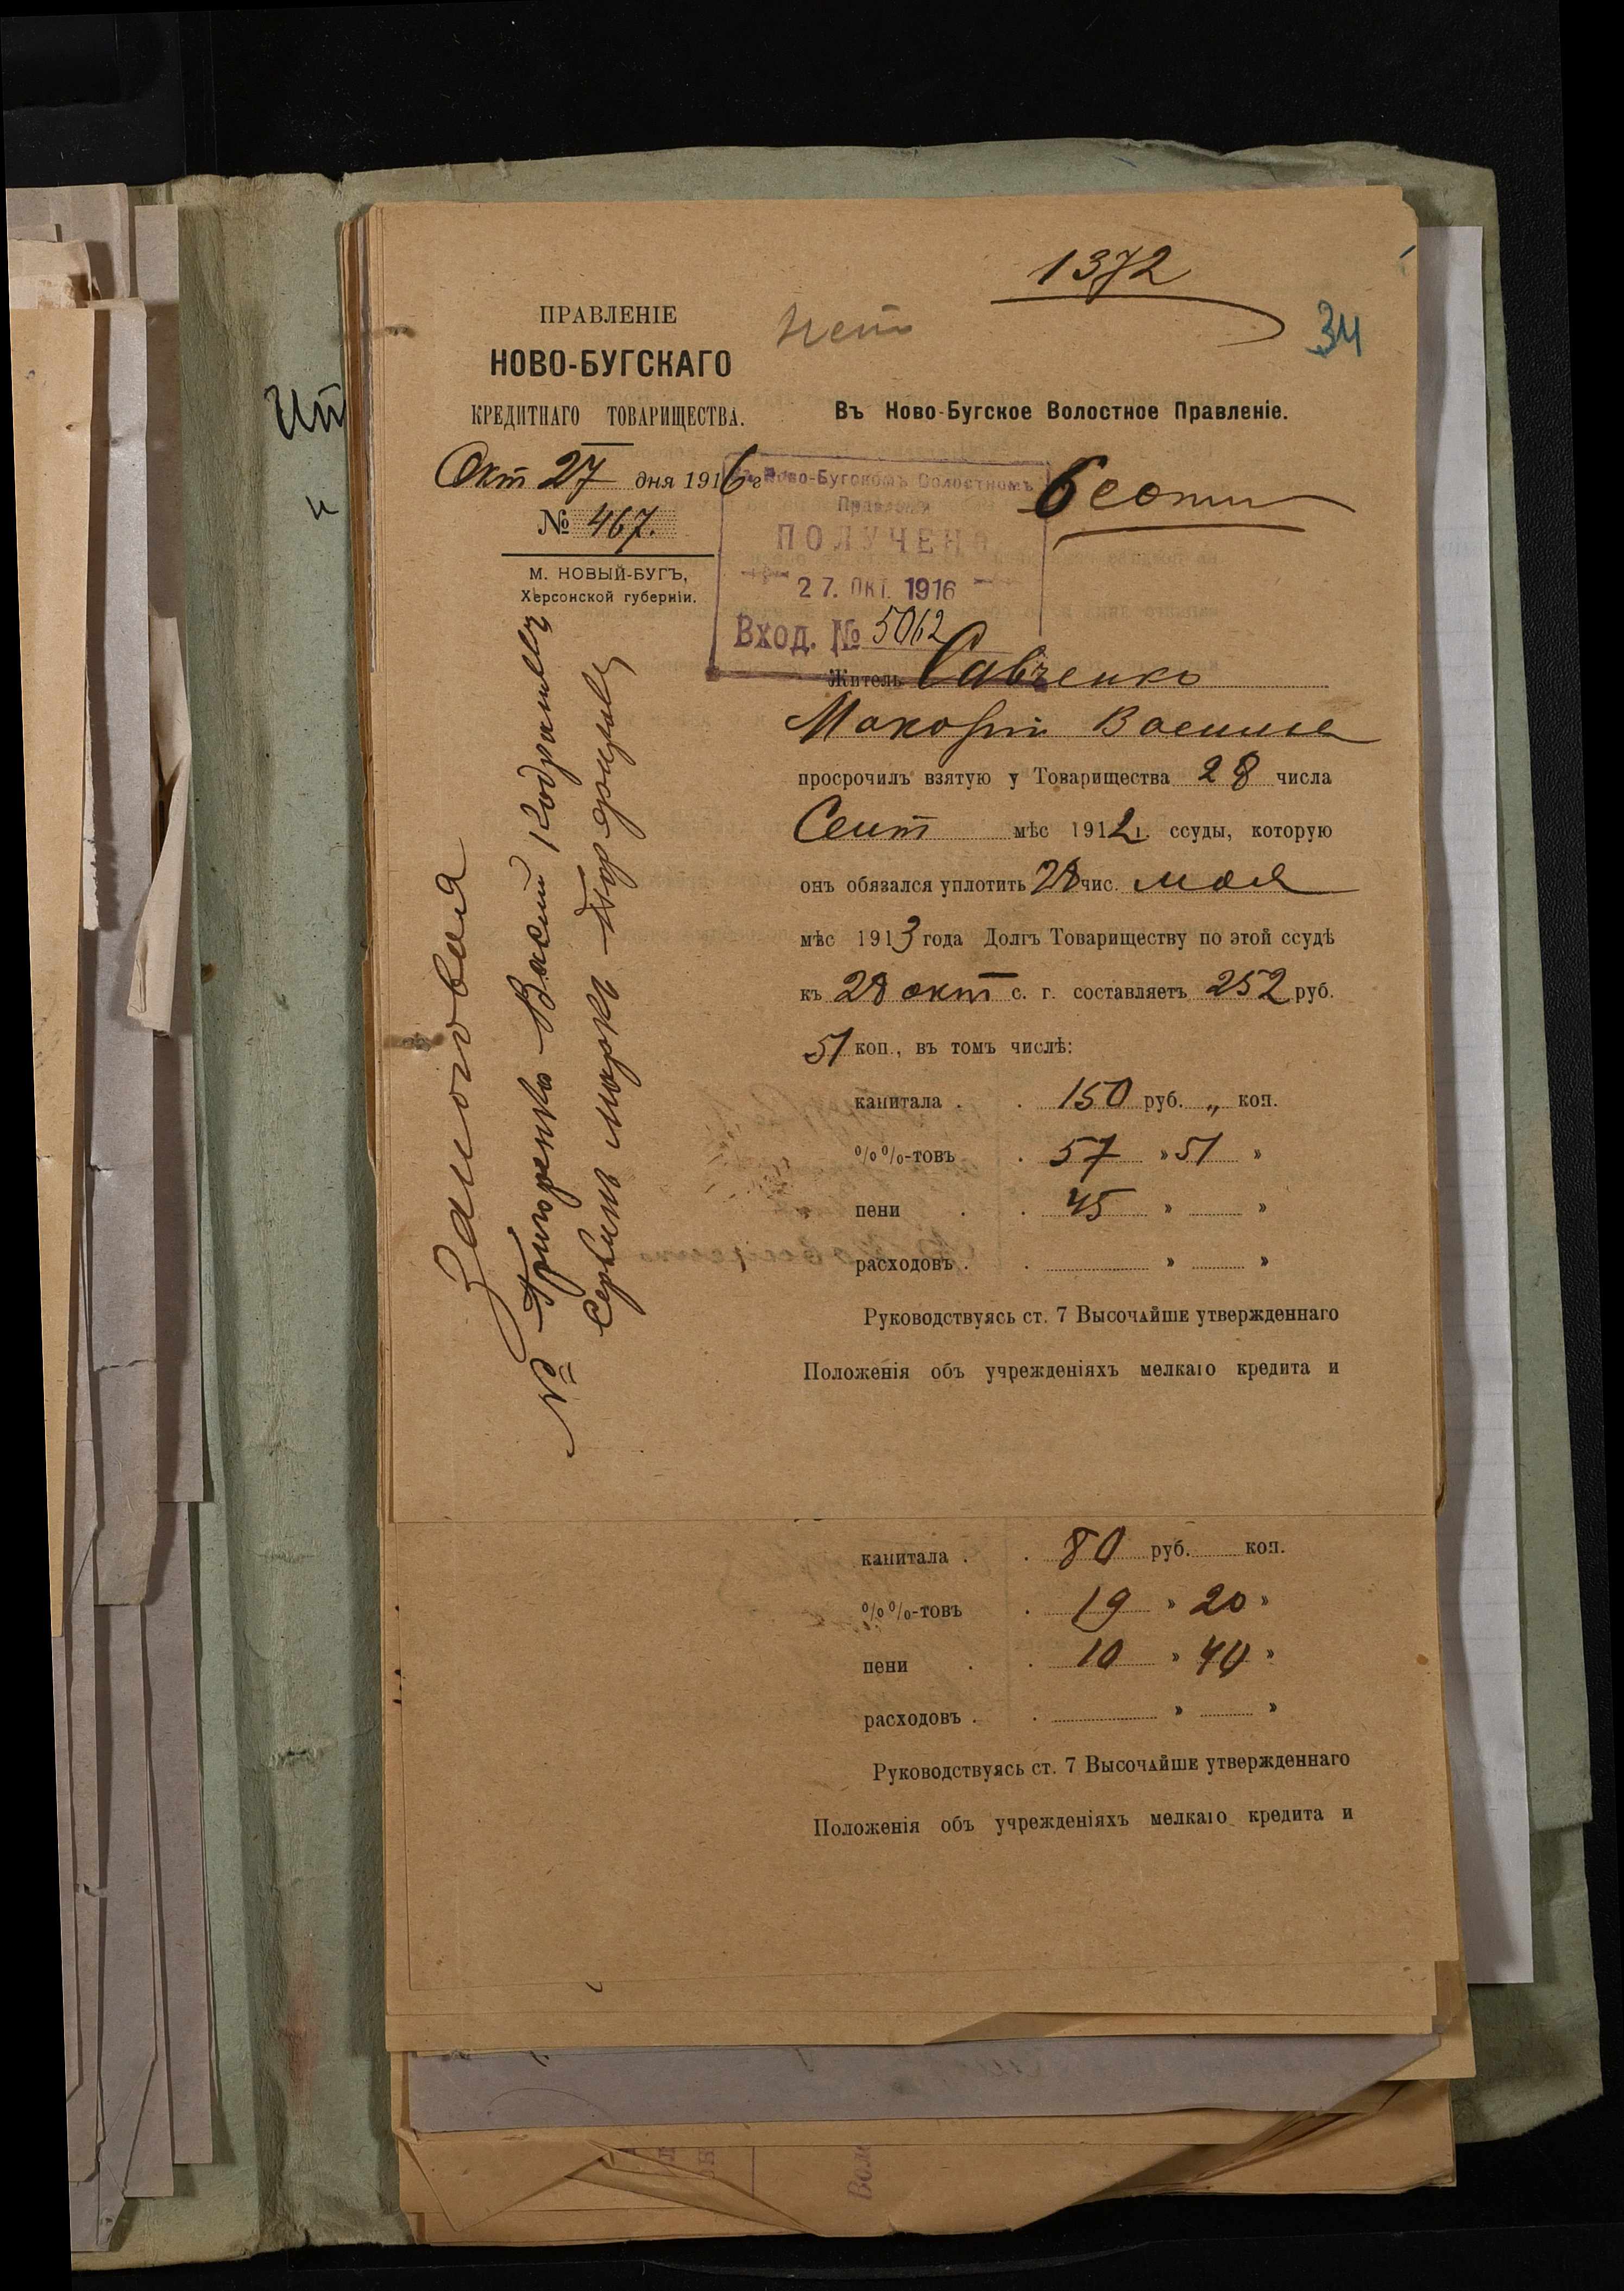 1372
34
нетъ
ПРАВЛЕНІЕ
НОВО-БУГСКАГО
КРЕДИТНАГО ТОВАРИЩЕСТВА.
Въ Ново-Бугское Волостное Правленіе.
Окт 27 дня 1916 г
№ 467.
М. НОВЫЙ-БУГЪ,
Херсонской губерніи.
Ново-Бугскомъ Волостномъ
Правленіи
ПОЛУЧЕНО
27. ОКТ. 1916
Вход. № 5062
6 сотни
Житель Савченко
Макорій Васильев
просрочилъ взятую у Товарищества 28 числа
Сент мѣс 1912 г. ссуды, которую
онъ обязался уплотить 28 чис. мая
мѣс 1913 года Долгъ Товариществу по этой ссудѣ
къ 28 окт с. г. составляетъ 252 руб.
51 коп., въ томъ числѣ:
капитала . . 150 руб. „ коп.
%%-товъ . 57 » 51 »
пени . . 45 » »
расходовъ . . » »
Руководствуясь ст. 7 Высочайше утвержденнаго
Положенія объ учрежденіяхъ мелкаго кредита и
Залоговая
№
Василь
капитала . . 80 руб. коп.
%%-товъ . 19 » 20 »
пени . . 10 » 40 »
расходовъ . . » »
Руководствуясь ст. 7 Высочайше утвержденнаго
Положенія объ учрежденіяхъ мелкаго кредита и